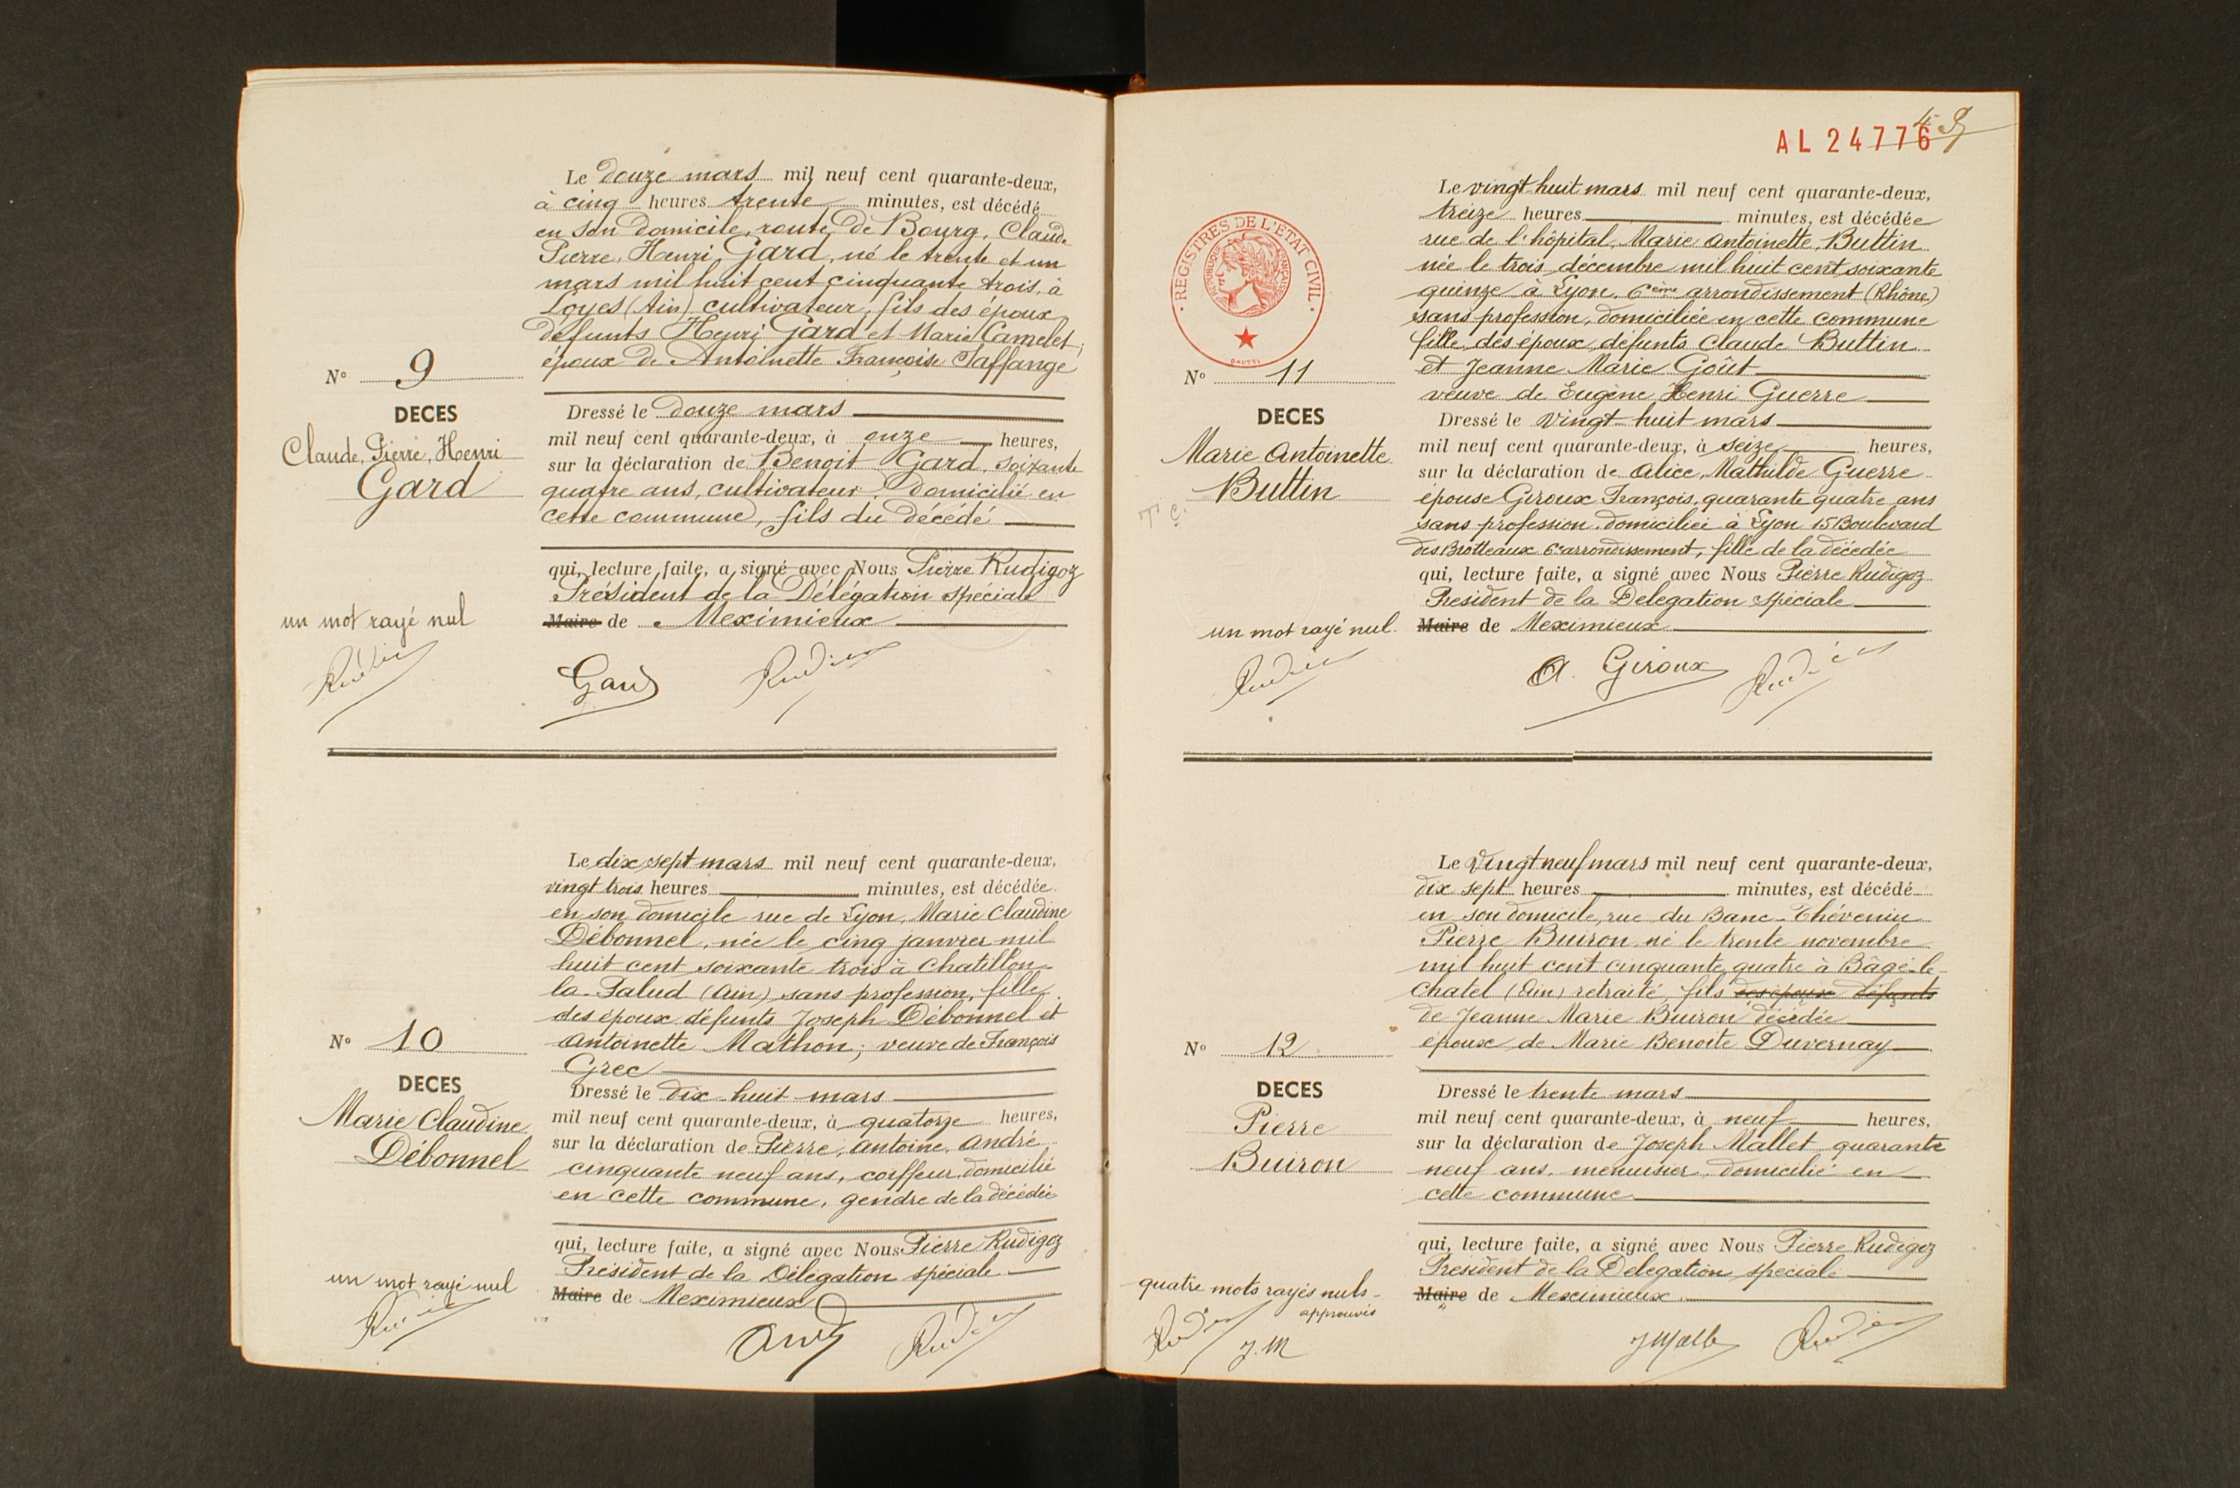 Le douze mars mil neuf cent quarante-deux,
à cinq heures trente minutes, est décédé
en son domicile, route de Bourg, Claude
Pierre, Henri Gard, né le trente et un
mars mil huit cent cinquante trois, à
Loyes (Ain) cultivateur, fils des époux
défunts Henri Gard et Marie Camelet,
époux de Antoinette Françoise Jaffange
N° 9
DECES
Claude, Pierre, Henri
Gard
Dressé le douze mars
mil neuf cent quarante-deux, à onze heures,
sur la déclaration de Benoit Gard, soixante
quatre ans, cultivateur, domicilié en
cette commune, fils du décédé
qui, lecture faite, a signé avec Nous Pierre Rudigoz
Président de la Délégation spéciale
Maire de Meximieux
un mot rayé nul
Gard
Le dix sept mars mil neuf cent quarante-deux,
vingt trois heures minutes, est décédée
en son domicile rue de Lyon, Marie Claudine
Débonnel, née le cinq janvier mil
huit cent soixante trois à Chatillon
la Palud (Ain) sans profession, fille
des époux défunts Joseph Débonnel et
Antoinette Mathon; veuve de François
Grec
N° 10
DECES
Marie Claudine
Débonnel
Dressé le dix huit mars
mil neuf cent quarante-deux, à quatorze heures,
sur la déclaration de Pierre, Antoine, André,
cinquante neuf ans, coiffeur, domicilié
en cette commune, gendre de la décédée
qui, lecture faite, a signé avec Nous Pierre Rudigoz
Président de la Délégation spéciale
Maire de Meximieux
un mot rayé nul
AL 24776
REGISTRES DE L'ETAT CIVIL
Le vingt huit mars mil neuf cent quarante-deux,
treize heures minutes, est décédée
rue de l'hôpital, Marie Antoinette, Buttin
née le trois décembre mil huit cent soixante
quinze à Lyon, 6ème arrondissement (Rhône)
sans profession, domiciliée en cette commune
fille des époux défunts Claude Buttin
et Jeanne Marie Goût
veuve de Eugène Henri Guerre
N° 11
DECES
Marie Antoinette
Buttin
Dressé le vingt huit mars
mil neuf cent quarante-deux, à seize heures,
sur la déclaration de Alice, Mathilde Guerre
épouse Giroux François, quarante quatre ans
sans profession, domiciliée à Lyon 15 Boulevard
des Brotteaux 6e arrondissement, fille de la décédée
qui, lecture faite, a signé avec Nous Pierre Rudigoz
President de la Delegation spéciale
Maire de Meximieux
un mot rayé nul
A. Giroux
Le vingt neuf mars mil neuf cent quarante-deux,
dix sept heures minutes, est décédé
en son domicile, rue du Banc-Thévenin
Pierre Buiron né le trente novembre
mil huit cent cinquante quatre à Bâgé-le-
Chatel (Ain) retraité, fils des époux défunts
de Jeanne Marie Buiron décédée
époux de Marie Benoite Duvernay
N° 12
DECES
Pierre
Buiron
Dressé le trente mars
mil neuf cent quarante-deux, à neuf heures,
sur la déclaration de Joseph Mallet quarante
neuf ans, menuisier, domicilié en
cette commune
qui, lecture faite, a signé avec Nous Pierre Rudigoz
President de la Delegation speciale
Maire de Meximieux
quatre mots rayés nuls
approuvés
J.M